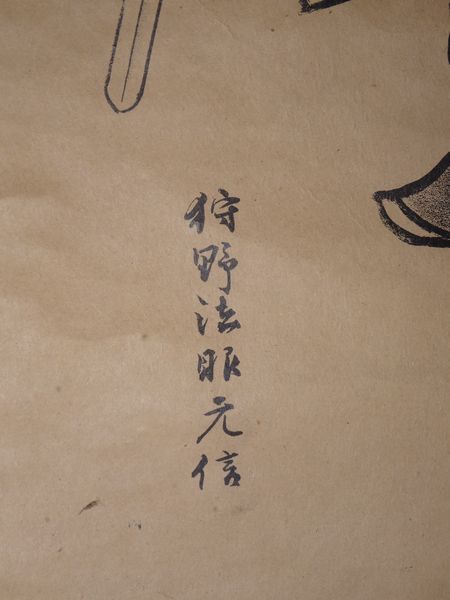 狩野法眼元信